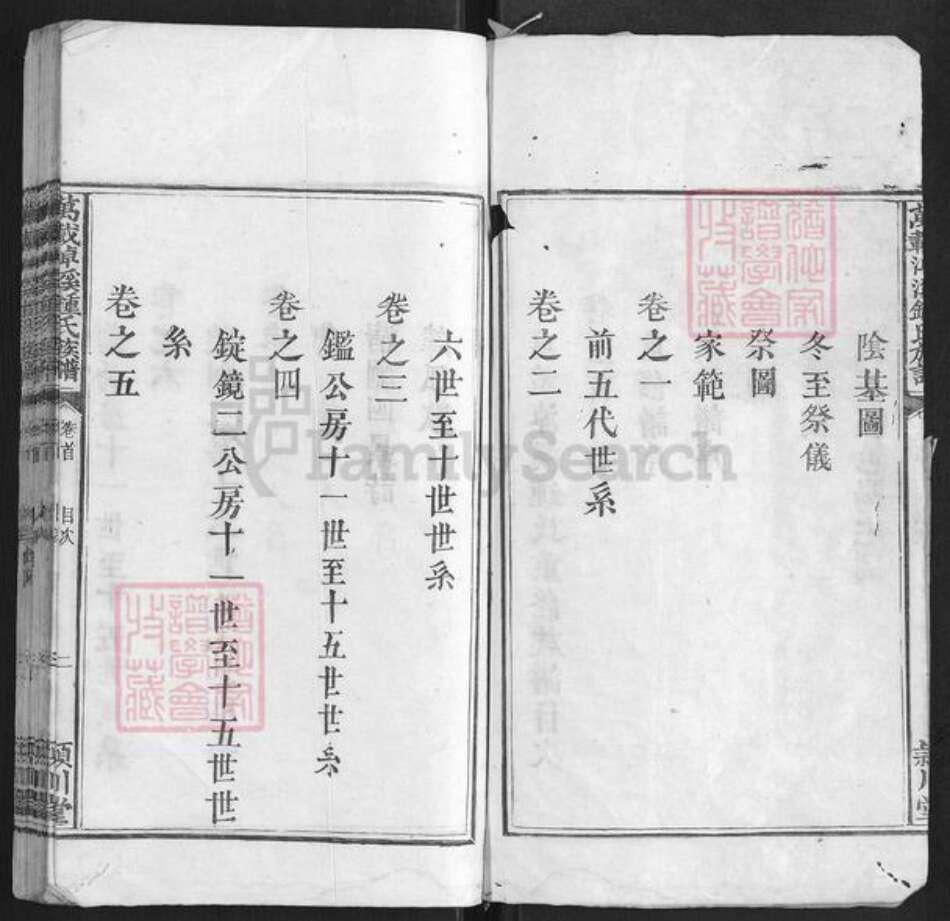 陰基圖
冬至祭儀
祭圖
家範
卷之一
前五代世系
卷之二
六世至十世世系
卷之三
鑑公房十一世至十五世世系
卷之四
錠鏡二公房十一世至十五世世
系
卷之五
萬載
族譜
卷首
目次
潁川堂
譜學會
收藏
FamilySearch